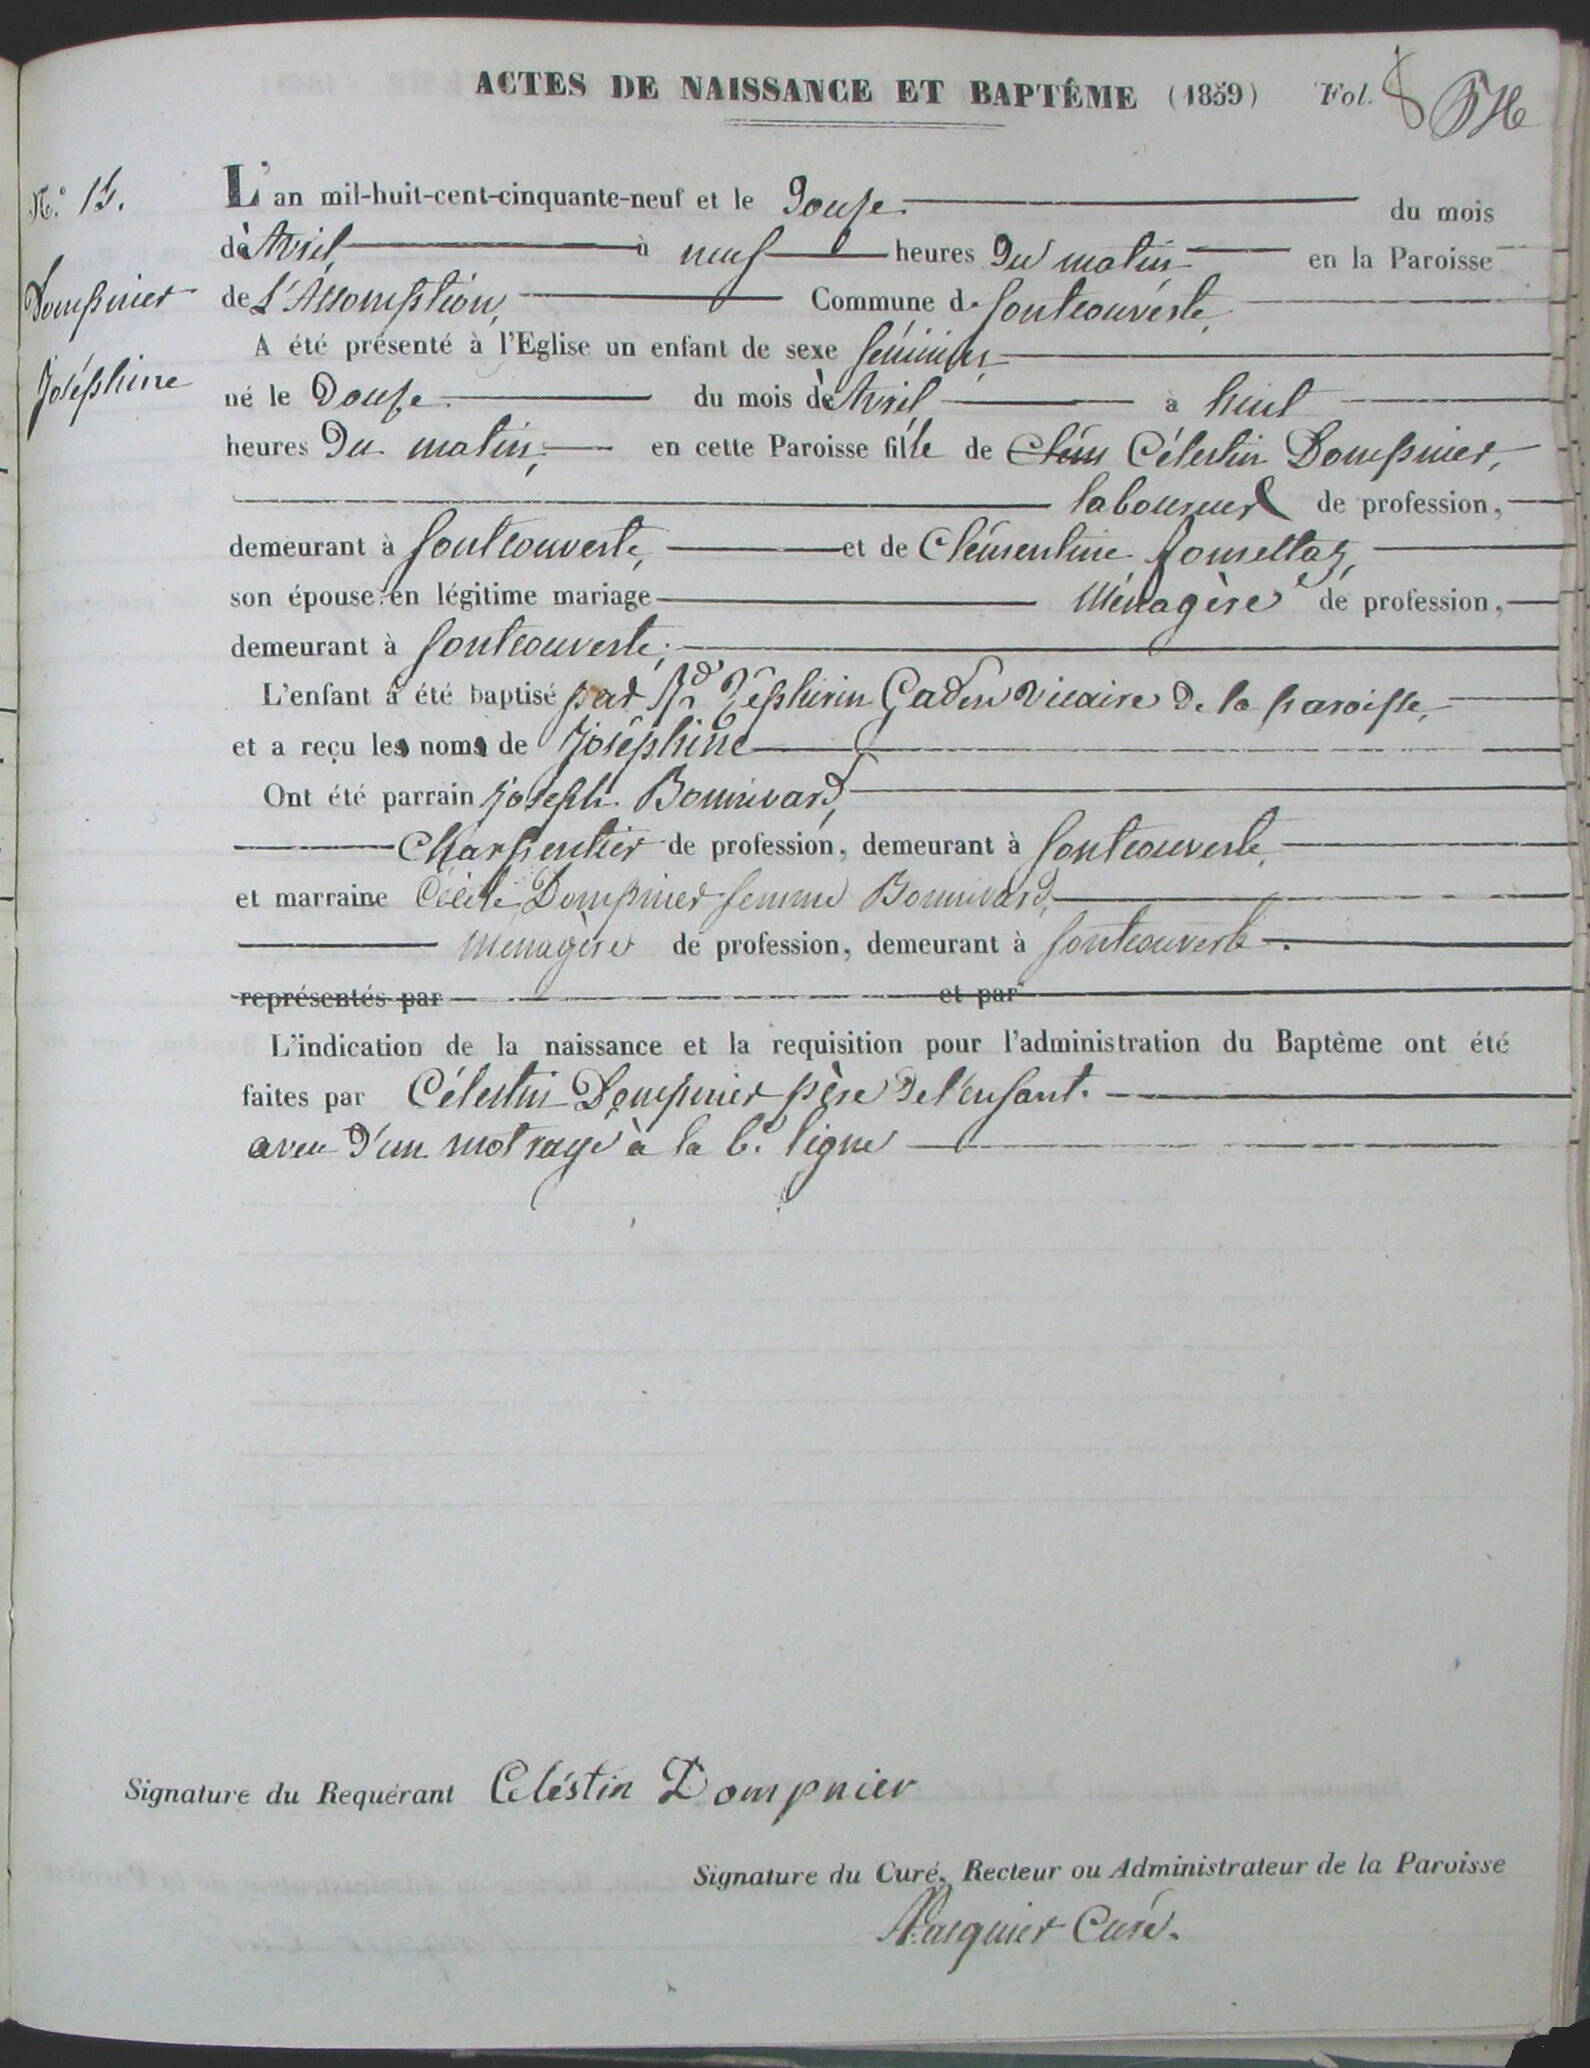 ACTES DE NAISSANCE ET BAPTÊME (1859) Fol. 8
N.° 15.
Dompnier
Joséphine
L'an mil-huit-cent-cinquante-neuf et le Douse du mois
d'Avril, à neuf heures Du matin en la Paroisse
de L'Assomption, Commune de Fontcouverte,
A été présenté à l'Eglise un enfant de sexe féminin,
né le Douse du mois d'Avril à huit
heures Du matin, en cette Paroisse fille de Clém Célestin Dompnier,
laboureur de profession,
demeurant à fontcouverte, et de Clémentine
son épouse en légitime mariage Ménagère de profession,
demeurant à fontcouverte;
L'enfant a été baptisé par Rd Zéphirin Gaden Vicaire De la paroisse,
et a reçu les noms de Joséphine
Ont été parrain Joseph Bonnivard,
Charpentier de profession, demeurant à fontcouverte,
et marraine Cécile Dompnier femme Bonnivard,
Ménagère de profession, demeurant à fontcouverte.
représentés par et par
L'indication de la naissance et la requisition pour l'administration du Baptême ont été
faites par Célestin Dompnier père De l'enfant.
avec D'un mot rayé à la 6.e ligne
Signature du Requérant Celéstin Dompnier
Signature du Curé, Recteur ou Administrateur de la Paroisse
Pasquier Curé.